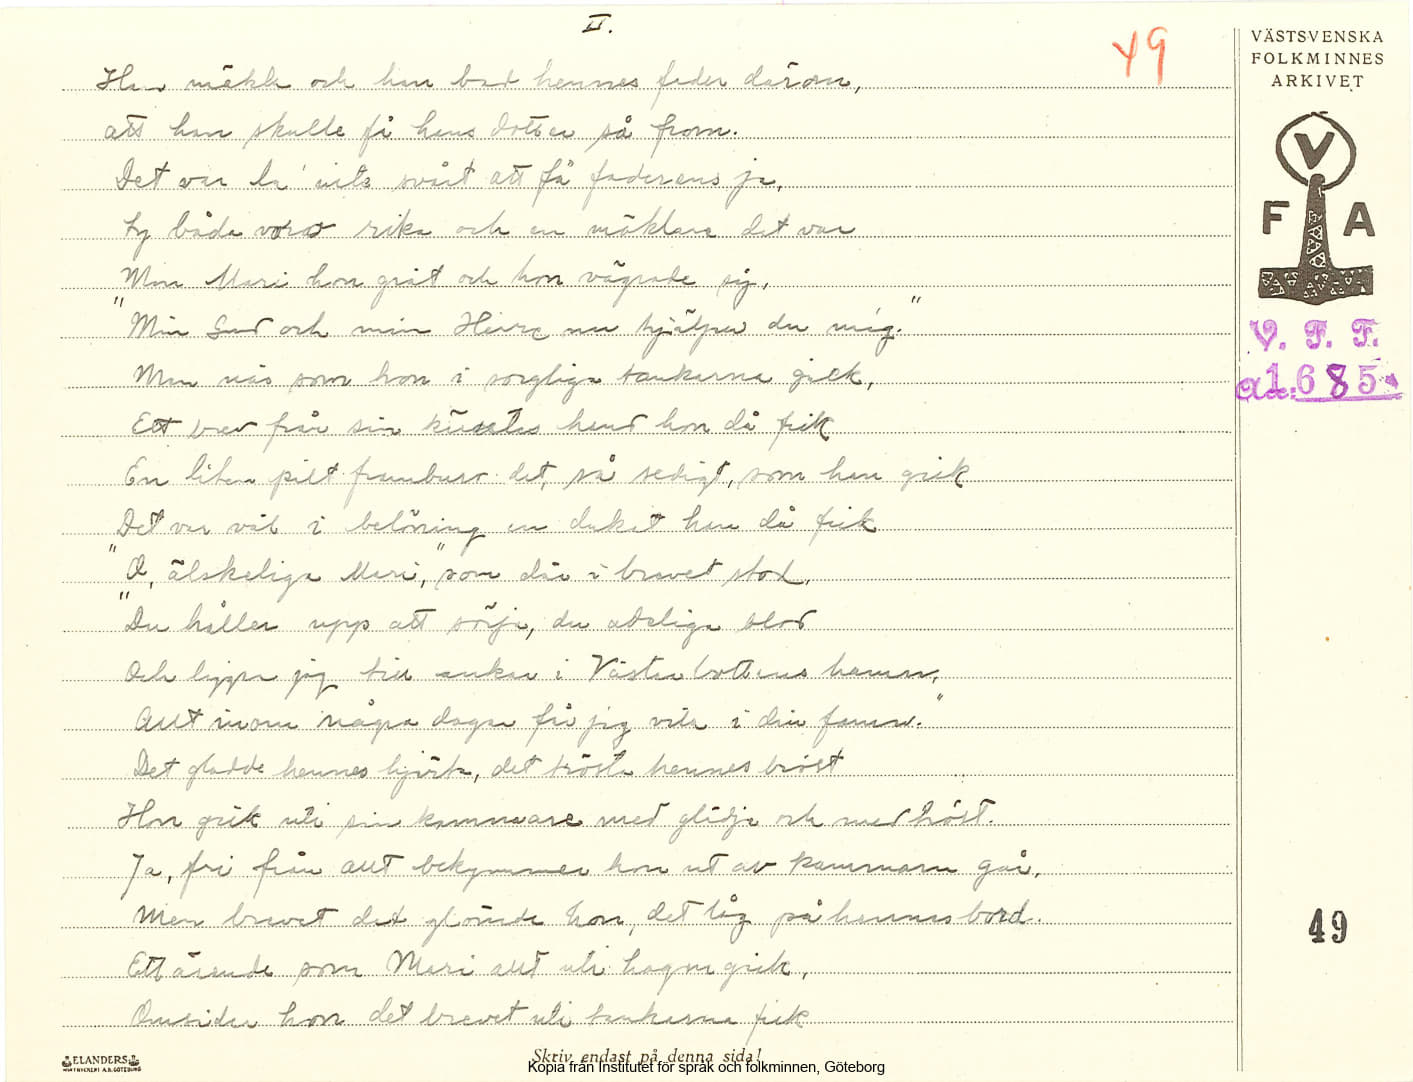 II.
49
VÄSTSVENSKA
FOLKMINNES
ARKIVET
V
F A
V. F. F.
acc: 1685
Han mäkla och han bad hennes fader därom,
att han skulle få hans dotter så from.
Det var la' inte svårt att få faderens ja,
ty båda voro rika och en mäklare det var
Men Mari hon grät och hon vägrade sig,
"Min Gud och min Herre nu hjälper du mig."
Men näs som hon i sorgliga tankarna gick,
Ett brev från sin käraste hand hon då fick
En liten pilt frambure det, så sedigt, som han gick
Det var väl i belöning en dukat han då fick
"O, älskeliga Mari," som där i brevet stod,
"Du håller upp att sörja, du adeliga blod
Och ligger jag till ankar i Västerbottens hamn,
Allt inom några dagar får jag vila i din famn."
Det gladde hennes hjärta, det tröste hennes bröst
Hon gick uti sin kammare med glädje och med tröst.
Ja, fri från allt bekymmer hon ut av kammarn går,
Men brevet det glömde hon, det låg på hennes bord.
Ett ärende som Mari allt uti hagen gick,
Omsider hon det brevet uti tankarna fick
49
ELANDERS
BOKTRYCKERI A.B. GÖTEBORG
Skriv endast på denna sida!
Kopia från Institutet för språk och folkminnen, Göteborg